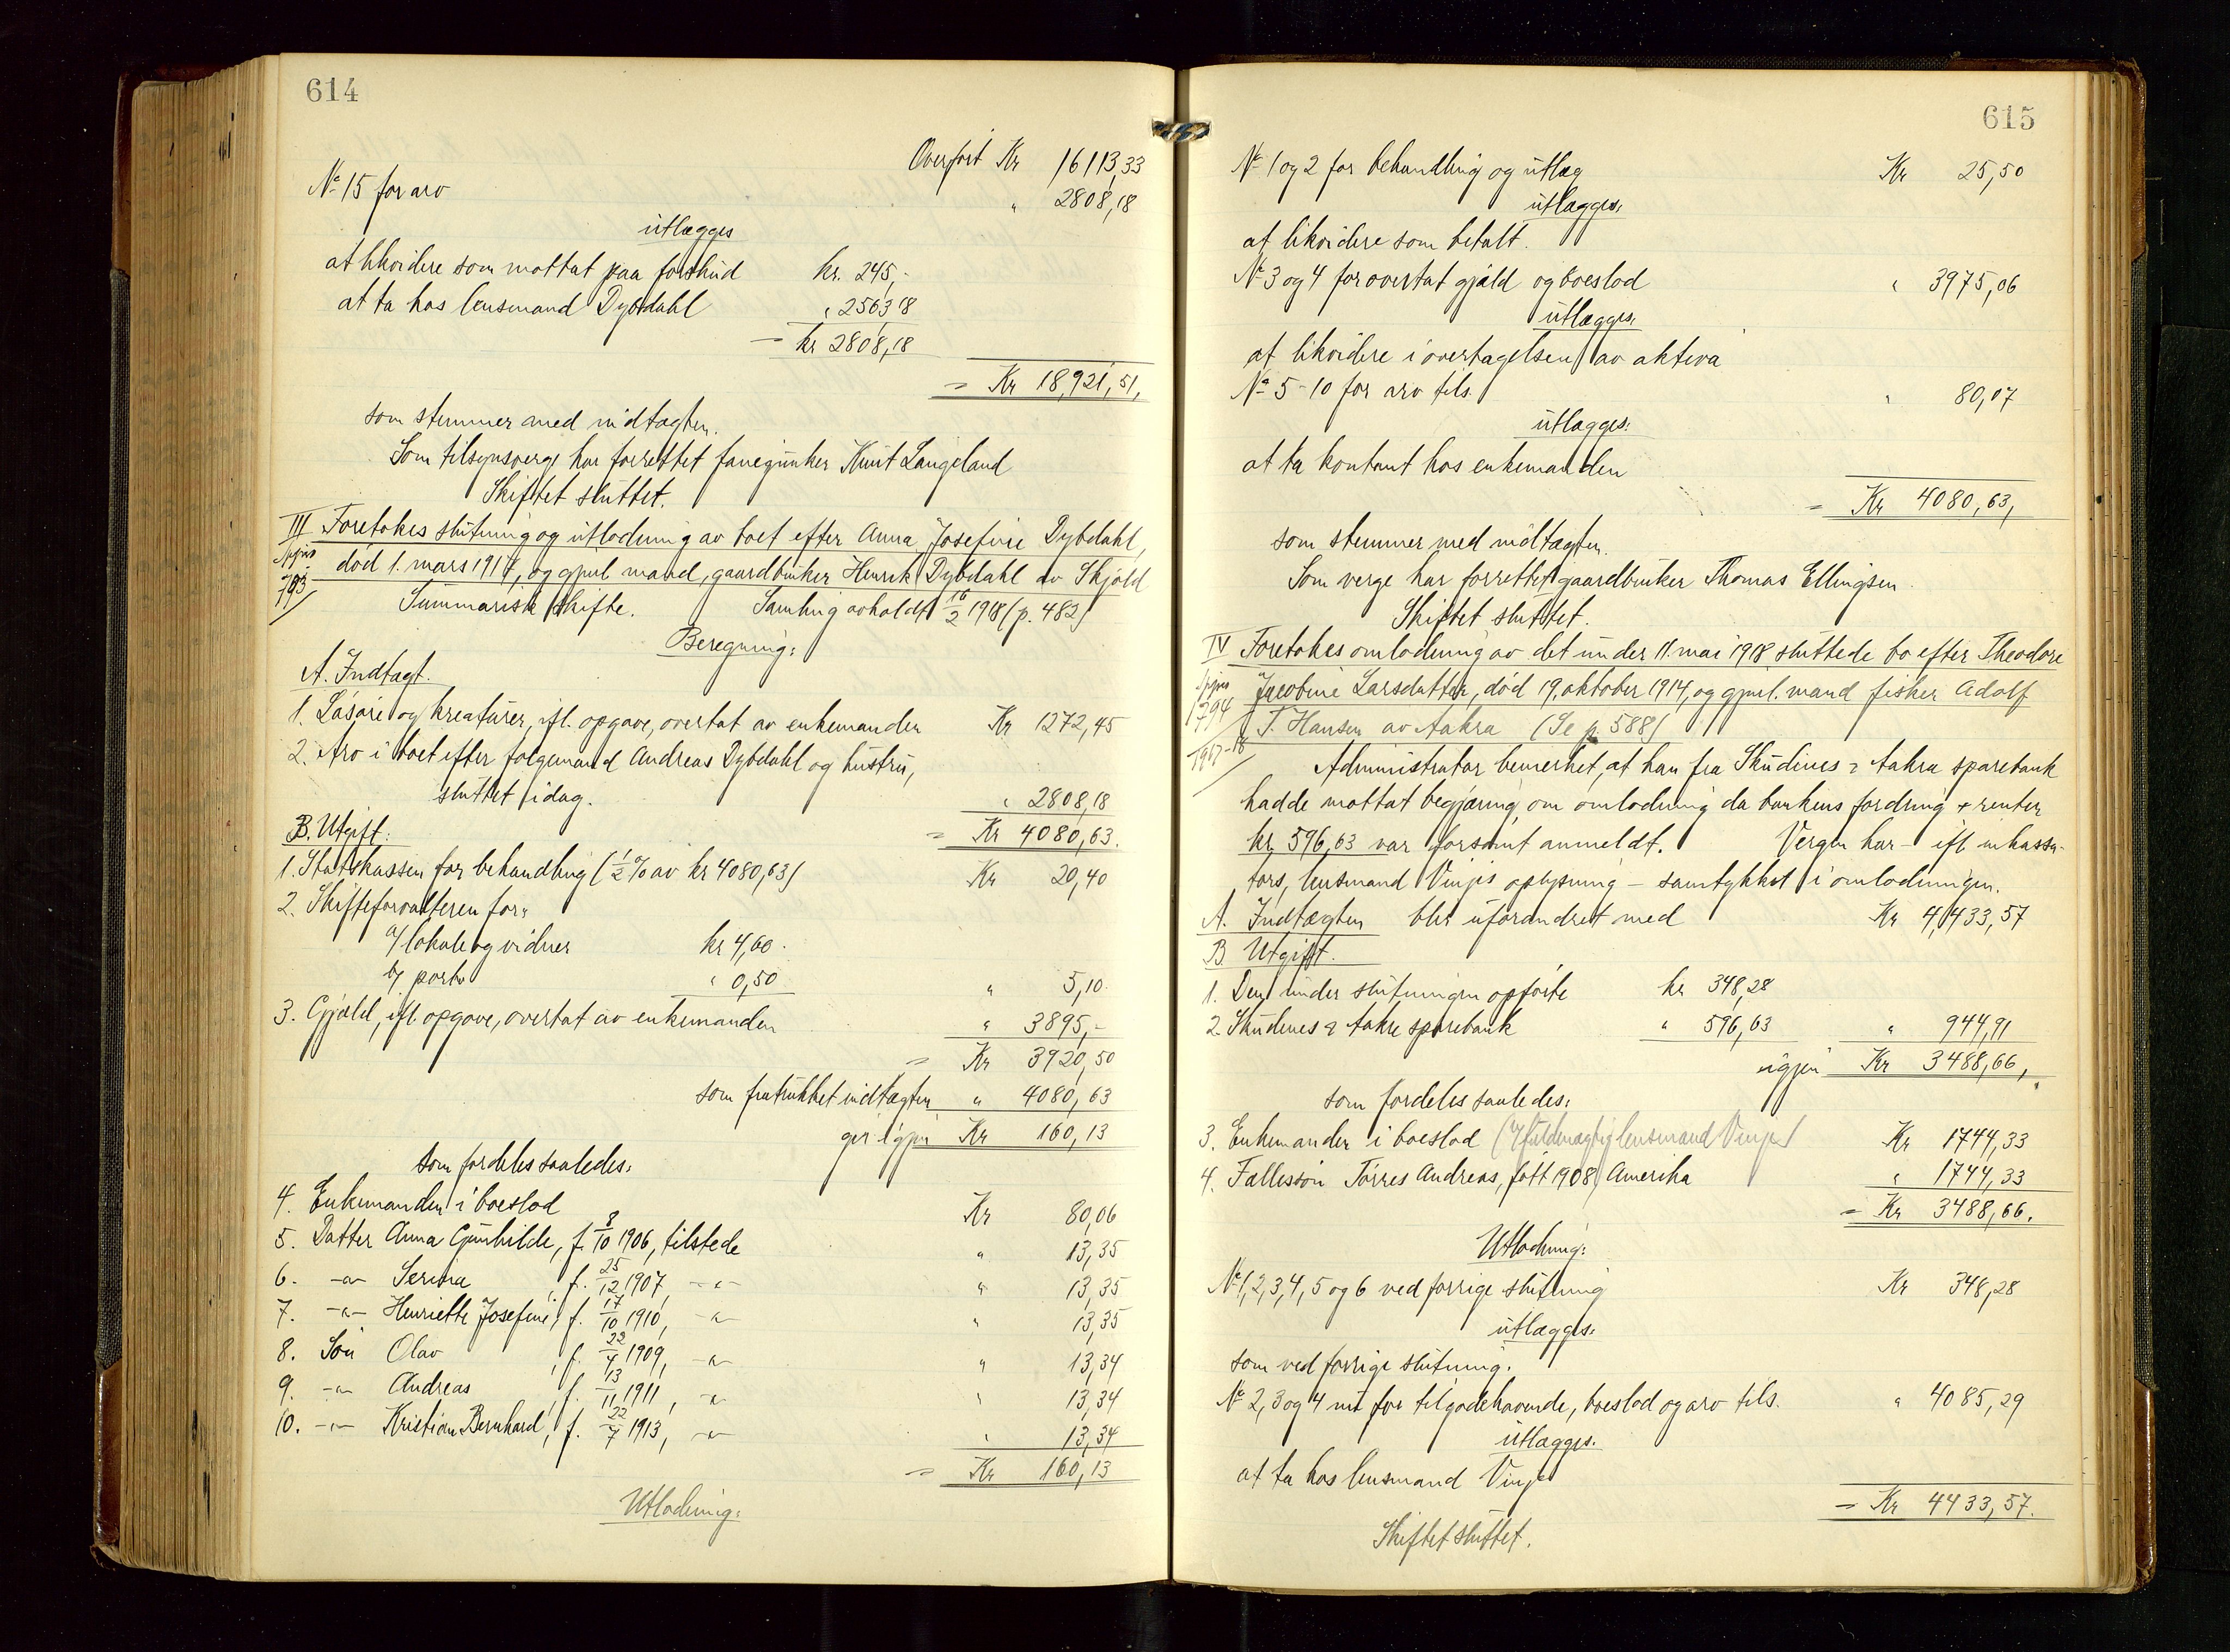 614
Overført Kr 16113,33
No 15 for arv " 2808,18
utlægges
at likvidere som mottat paa forskud kr. 245,-
at ta hos lensmand Dybdahl " 2563,18
= kr 2808,18
= Kr 18,921,51,
som stemmer med indtægten.
Som tilsynsverge har forrettet fanejunker Knut Langeland
Skiftet sluttet.
III Foretokes slutning og utlodning av boet efter Anna Josefine Dybdahl,
død 1. mars 1917, og gjenl. mand, gaardbruker Henrik Dybdahl av Skjold
793
Summarisk skifte. Samling avholdt 16/2 1918 (p. 482)
Beregning:
A. Indtægt.
1. Løsøre og kreaturer, ifl. opgave, overtat av enkemanden Kr 1272,45
2. Arv i boet efter folgemand Andreas Dybdahl og hustru,
sluttet idag. " 2808,18
= Kr 4080,63.
B. Utgift:
1. Statskassen for behandling (1/2 % av kr 4080,63) Kr 20,40
2. Skifteforvalteren for:
a/ lokale og vidner kr 4,60.
b/ porto " 0,50 " 5,10.
3. Gjæld, ifl. opgave, overtat av enkemanden " 3895,-
= Kr 3920,50
som fratrukket indtægten " 4080,63
gir igjen Kr 160,13
som fordeles saaledes:
4. Enkemanden i boeslod Kr 80,06
5. Datter Anna Gunhilde, f. 8/10 1906, tilstede " 13,35
6. -"- Serina, f. 25/12 1907, -"- " 13,35
7. -"- Henriette Josefine, f. 17/10 1910, -"- " 13,35
8. Søn Olav, f. 22/4 1909, -"- " 13,34
9. -"- Andreas, f. 13/11 1911, -"- " 13,34
10. -"- Kristian Bernhard, f. 22/7 1913, -"- " 13,34
= Kr 160,13
Utlodning:
615
No 1 og 2 for behandling og utlæg Kr 25,50
utlægges:
at likvidere som betalt.
No 3 og 4 for overtat gjæld og boeslod " 3975,06
utlægges:
at likvidere i overtagelsen av aktiva
No 5-10 for arv tils. " 80,07
utlægges:
at ta kontant hos enkemanden
= Kr 4080,63,
som stemmer med indtægten.
Som verge har forrettet gaardbruker Thomas Ellingsen.
Skiftet sluttet.
IV Foretokes omlodning av det under 11. mai 1918 sluttede bo efter Theodore
Jacobine Larsdatter, død 19. oktober 1914, og gjenl. mand fisker Adolf
794
T. Hansen av Aakra (Se p. 588)
1917-18
Administrator bemerket, at han fra Skudenes & Aakra sparebank
hadde mottat begjæring om omlodning da bankens fordring + renter
kr 596,63 var forsømt anmeldt. Vergen har - ifl. inkassa-
tors, lensmand Vinjes oplysning - samtykket i omlodningen.
A. Indtægten blir uforandret med Kr 4,433,57
B. Utgift.
1. Den under slutningen opførte kr 348,28
2. Skudenes & Aakre sparebank " 596,63 " 944,91
igjen Kr 3488,66,
som fordeles saaledes:
3. Enkemanden i boeslod (v/ fuldmægtig lensmand Vinje) Kr 1744,33
4. Fællessøn Torres Andreas, født 1908, Amerika " 1744,33
= Kr 3488,66.
Utlodning:
No 1, 2, 3, 4, 5 og 6 ved forrige slutning Kr 348,28
utlægges:
som ved forrige slutning.
No 2, 3 og 4 nu for tilgodehavende, boeslod og arv tils. " 4085,29
utlægges:
at ta hos lensmand Vinje
= Kr 4433,57.
Skiftet sluttet.